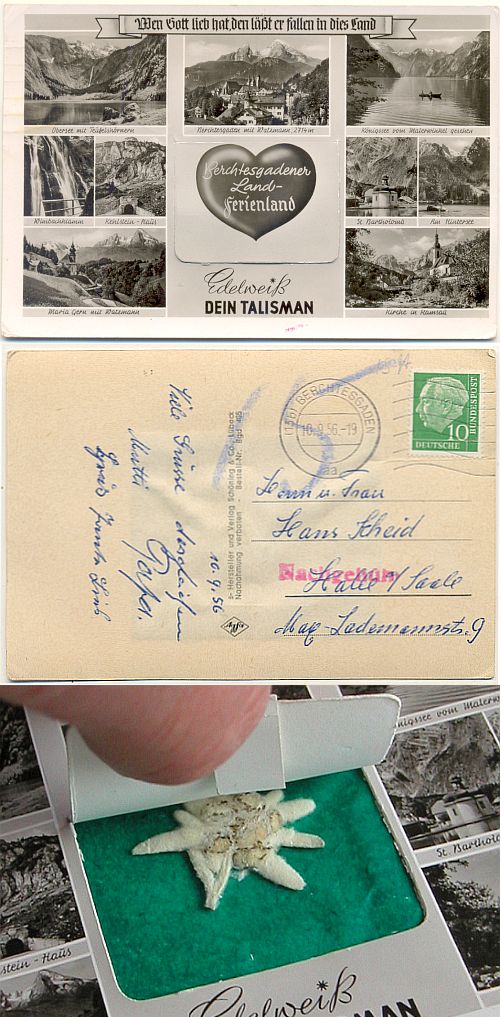 Wen Gott lieb hat, den läßt er fallen in dies Land
Obersee mit Teufelshörnern
Berchtesgaden mit Watzmann, 2714 m
Königssee vom Malerwinkel gesehen
Wimbachklamm
Kehlstein-Haus
Berchtesgadener
Land-
Ferienland
St. Bartholomä
Am Hintersee
Maria Gern mit Watzmann
Kirche in Ramsau
Edelweiß
DEIN TALISMAN
(13b) BERCHTESGADEN
10.9.56.-19
aa
10
DEUTSCHE
BUNDESPOST
Viele Grüße
Mutti
10.9.56
Hersteller und Verlag Schöning & Co., Lübeck
Nachahmung verboten - Bestell-Nr.
Herrn u. Frau
Hans Scheid
Nachgebühr
Halle / Saale
Max-Lademannstr. 9
Königssee vom Malerw
St. Barthol
stein-Haus
Edelweiß
TALISMAN